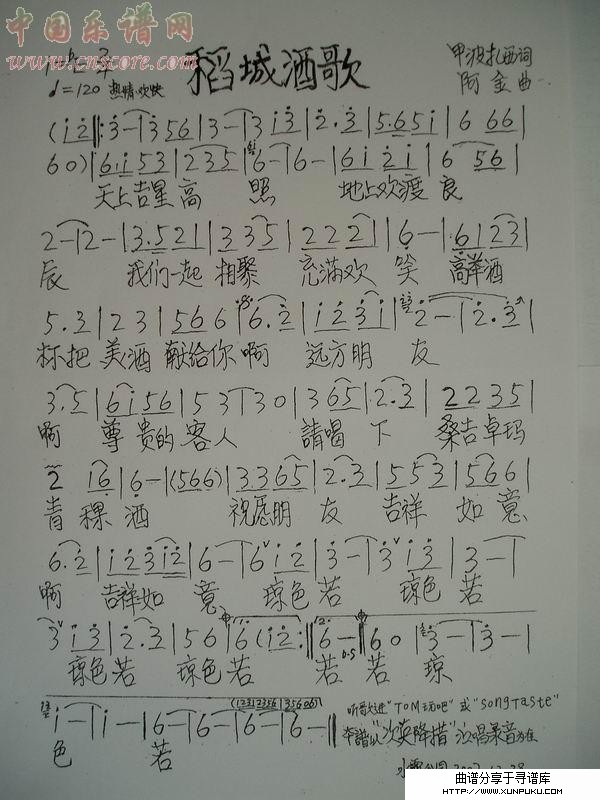 中国乐谱网
www.cnscore.com
稻城酒歌
甲波扎西词
阿金曲
♩=120 热情欢快
(i2‖:3-|356|3-|3 i3|2.3|5.65i|6 66|
60)|6.i53|235|6-|6-|6i 2i|6 56|
天上吉星高 照 地上欢渡良
2-|2-|3.521|335|222|6-|.6123|
辰 我们一起 相聚 充满欢 笑 高举酒
5.3|23|566|6.2|i23i|2-|2.3|
杯把 美酒 献给你 啊 远方朋 友
3.5|6i56|53|30|365|2.3|2235|
啊 尊贵的 客人 請唱 下 桑吉卓玛
2 16|6-|(566)|3365|2.3|553|566|
青稞 酒 祝愿朋 友 吉祥 如意
6.2|i23i2|6-|6 i2|3-|3 i3|3-|
啊 吉祥如 意 琼色 若 琼色 若
3 i3|2.3|56|6(i2:‖6-‖60|3-|3-|
琼色 若 琼色 若 若 若 琼
i-|i-|6-|6-|6-|6-‖
色 若
听歌进"TOM玩吧"或"SongTaste"
曲谱分享于寻谱库
HTTP://WWW.XUNPUKU.COM